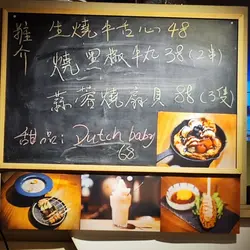 推介
生燒牛舌心 48
燒黑椒牛丸 38 (2串)
蒜蓉燒扇貝 88 (3隻)
甜品: Dutch baby
68